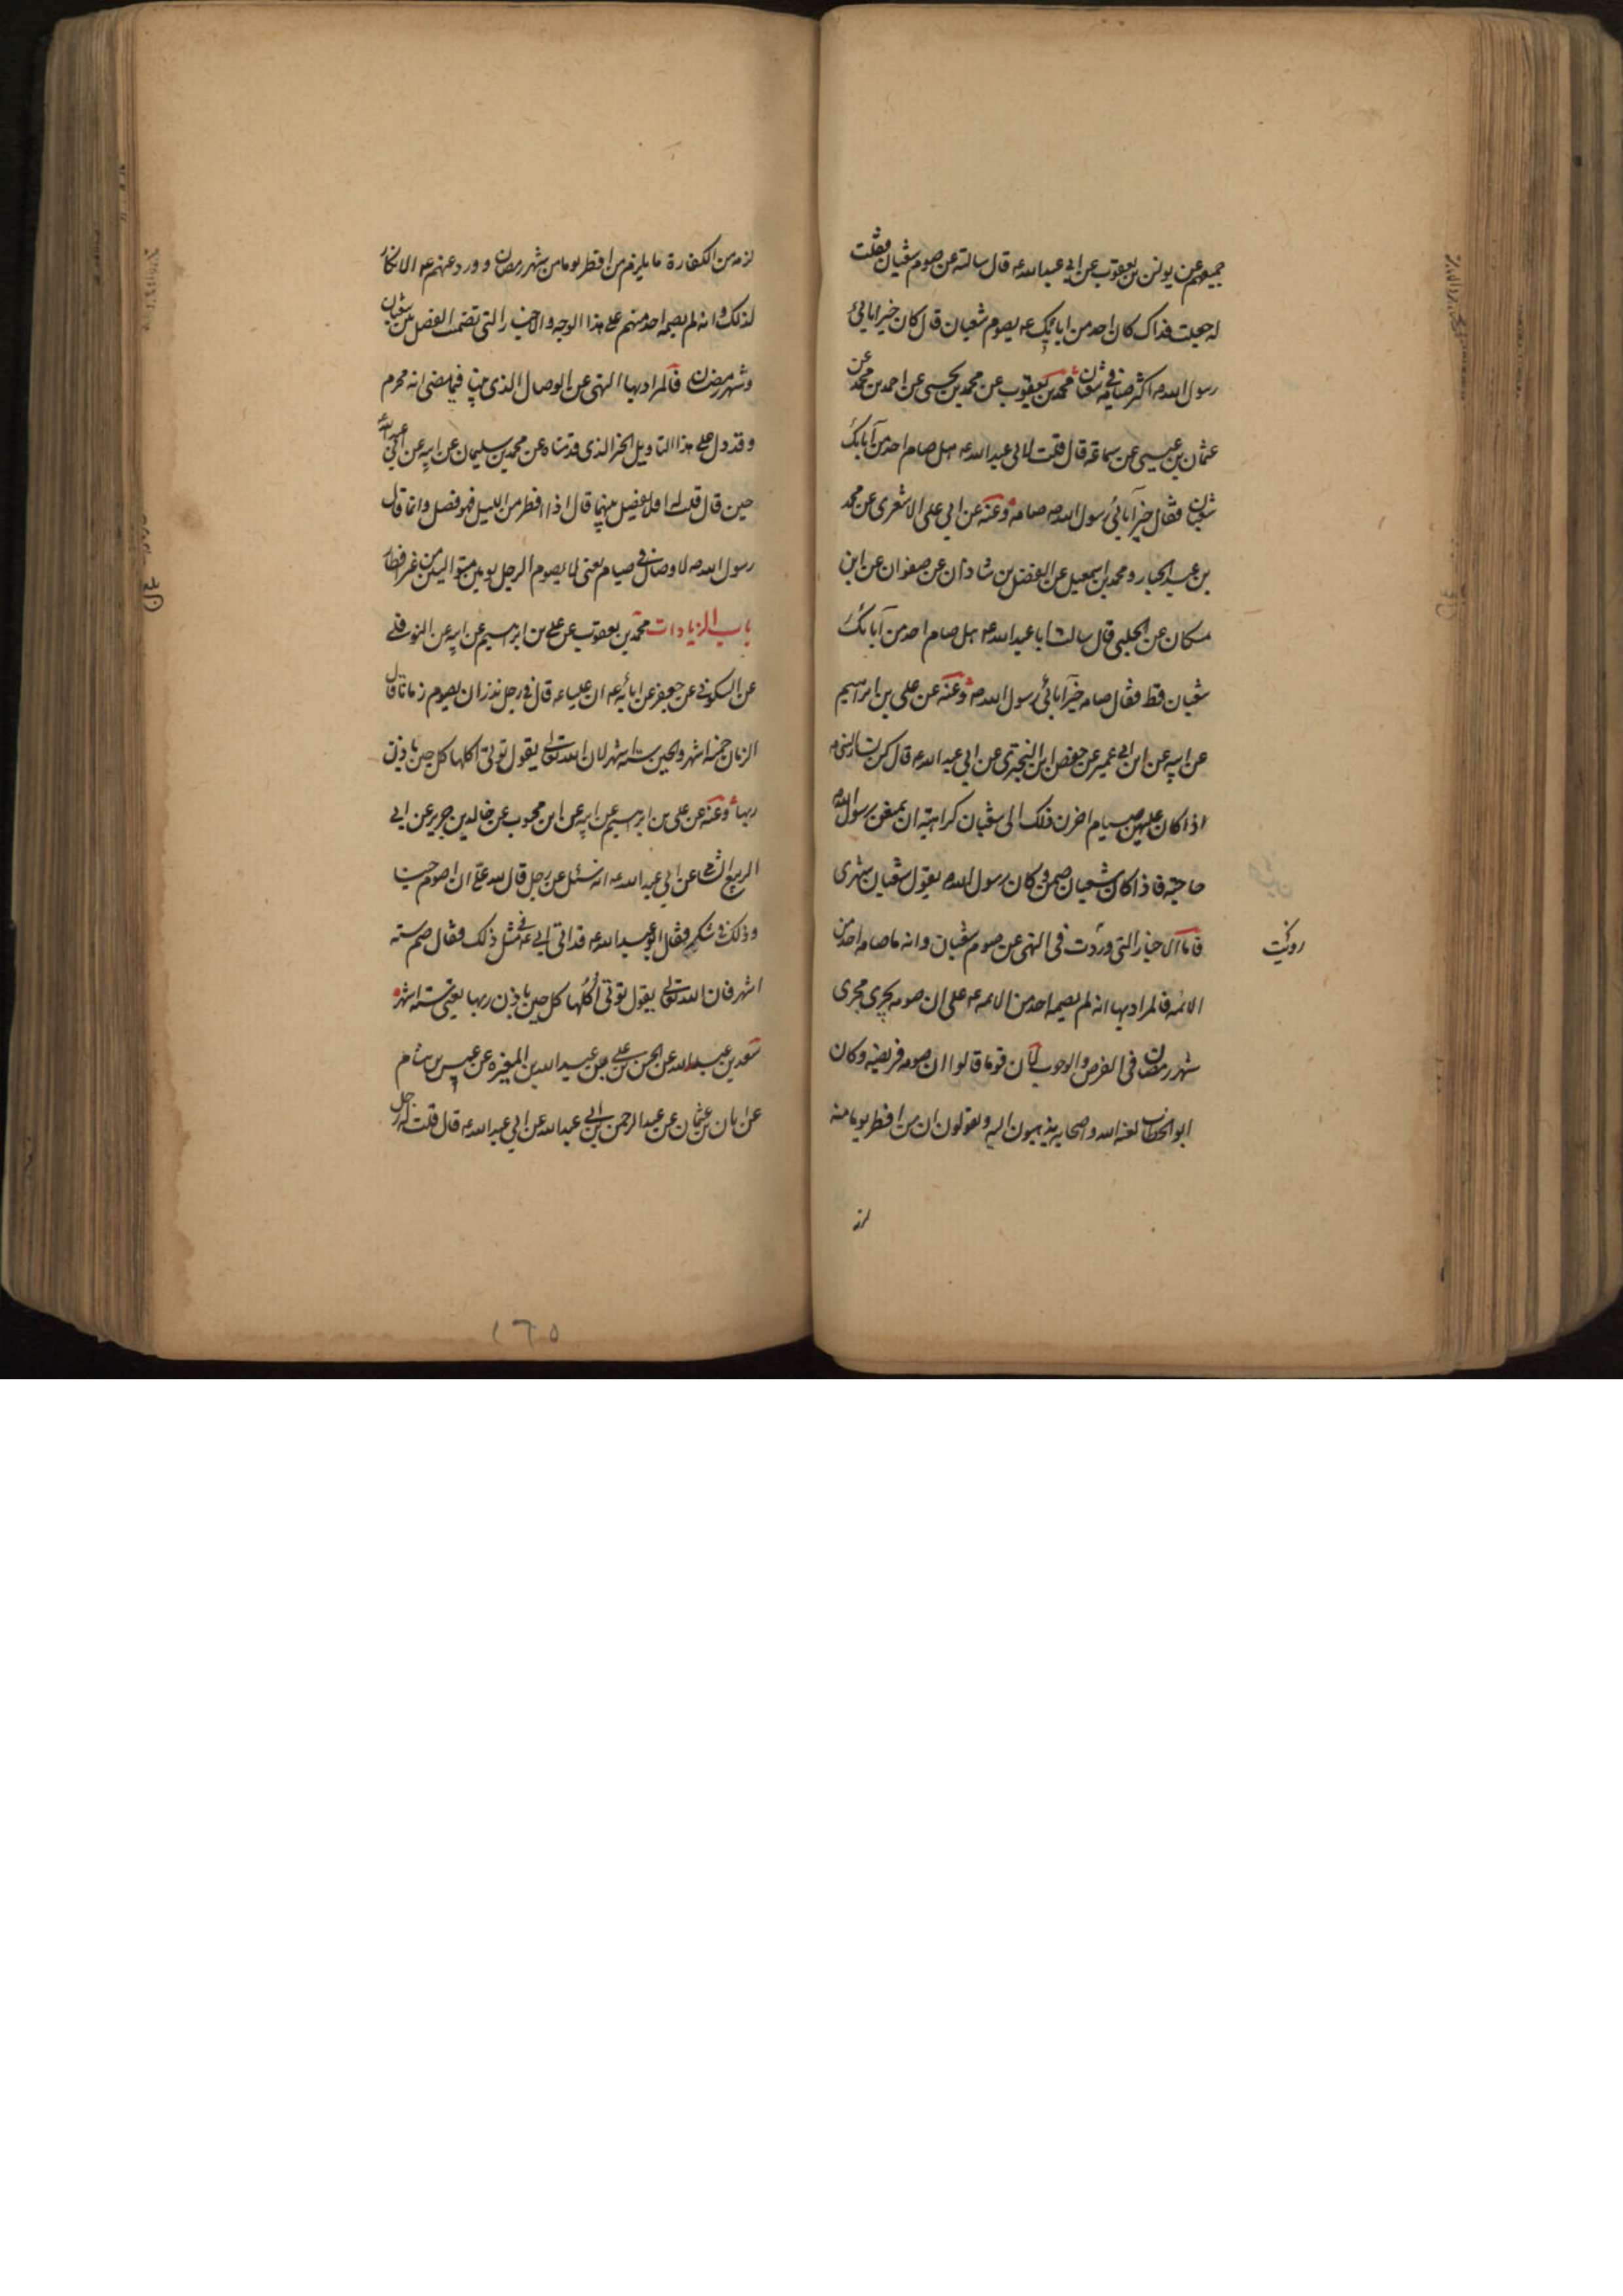 جميعهم عن يونس بن يعقوب عن ابي عبد الله ع قال سالته عن صوم شعبان فقلت
له جعلت فداك كان احد من ابائك ع يصوم شعبان قال كان خير ابائي
رسول الله ص اكثر صيامه في شعبان محمد بن يعقوب عن محمد بن يحيى عن احمد بن محمد عن
عثمان بن عيسى عن سماعة قال قلت لابي عبد الله ع هل صام احد من آبائك
شعبان فقال خير آبائي رسول الله ص صامه وعنه عن ابي علي الاشعري عن محمد
بن عبد الجبار ومحمد بن اسمعيل عن الفضل بن شاذان عن صفوان عن ابن
مسكان عن الحلبي قال سالت ابا عبد الله ع هل صام احد من آبائك
شعبان قط فقال صامه خير آبائي رسول الله ص وعنه عن علي بن ابراهيم
عن ابيه عن ابن ابي عمير عن حفص ابن البختري عن ابي عبد الله ع قال كن نساء النبي ص
اذا كان عليهن صيام اخرن ذلك الى شعبان كراهية ان يمنعن رسول الله ص
حاجته فاذا كان شعبان صمن وكان رسول الله ص يقول شعبان شهري
فاما الاخبار التي وردت في النهي عن صوم شعبان وانه ما صامه احد من
رويت
الائمه فالمراد بها انه لم يصمه احد من الائمه ع على ان صومه يجري مجرى
شهر رمضان في الفرض والوجوب لان قوما قالوا ان صومه فريضه وكان
ابو الخطاب لعنه الله واصحابه يذهبون اليه ويقولون ان من افطر يوما منه
لزمه
لزمه من الكفارة ما يلزم من افطر يوما من شهر رمضان وورد عنهم ع الانكار
لذلك وانه لم يصمه احد منهم على هذا الوجه والاخبار التي تضمنت الفصل بين شعبان
وشهر رمضان فالمراد بها النهي عن الوصال الذي بينا فيما مضى انه محرم
وقد دل على هذا التاويل الخبر الذي قدمناه عن محمد بن سليمان عن ابيه عن ابي عبد الله ع
حين قال قلت له افلا يفصل بينهما قال اذا افطر من الليل فهو فصل وانما قال
رسول الله ص لا وصال في صيام يعني لا يصوم الرجل يومين متواليين من غير افطار
باب الزيادات محمد بن يعقوب عن علي بن ابرهيم عن ابيه عن النوفلي
عن السكوني عن جعفر عن ابائه ع ان عليا ع قال في رجل نذر ان يصوم زمانا قال
الزمان خمسة اشهر والحين ستة اشهر لان الله تعالى يقول تؤتى اكلها كل حين باذن
ربها وعنه عن علي بن ابرهيم عن ابيه عن ابن محبوب عن خالد بن جرير عن ابي
الربيع الشامي عن ابي عبد الله ع انه سئل عن رجل قال لله علي ان اصوم حينا
وذلك في شكر فقال ابو عبد الله ع قد اتي ابي ع في مثل ذلك فقال صم ستة
اشهر فان الله تعالى يقول تؤتى أكلها كل حين باذن ربها يعني ستة اشهر
سعد بن عبد الله عن الحسن بن علي عن عبد الله بن المغيرة عن عبيس بن هشام
عن ابان بن عثمان عن عبد الرحمن بن ابي عبد الله عن ابي عبد الله ع قال قلت له رجل
١٦٥